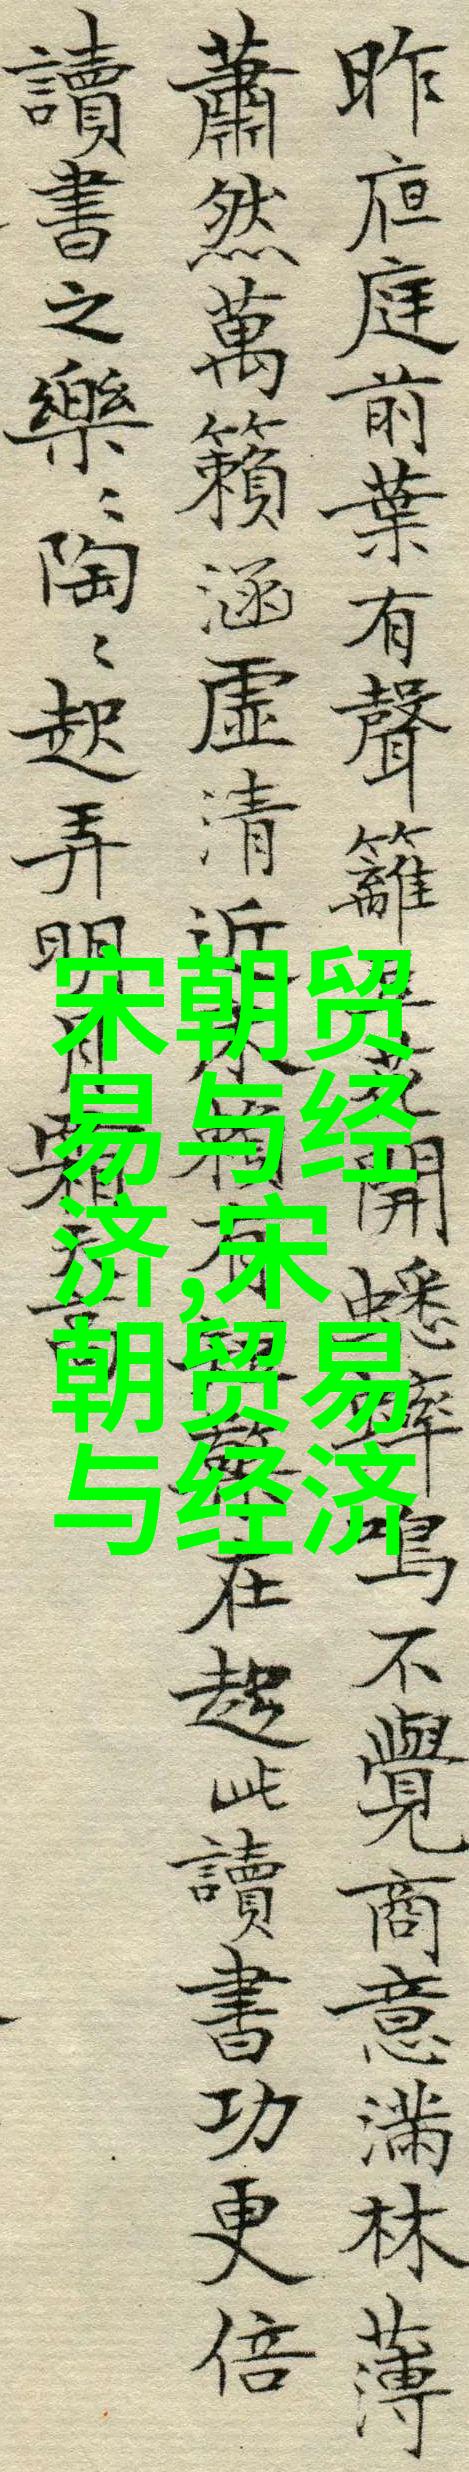 昨夜庭前葉有聲籬豆花開蟋蟀鳴不覺商意滿林薄
蕭然萬籟涵虛清近床賴有短檠在趁此讀書功更倍
讀書之樂〻陶〻起弄明月霜天高
宋朝贸
易与经
济,宋
朝贸易
与经济